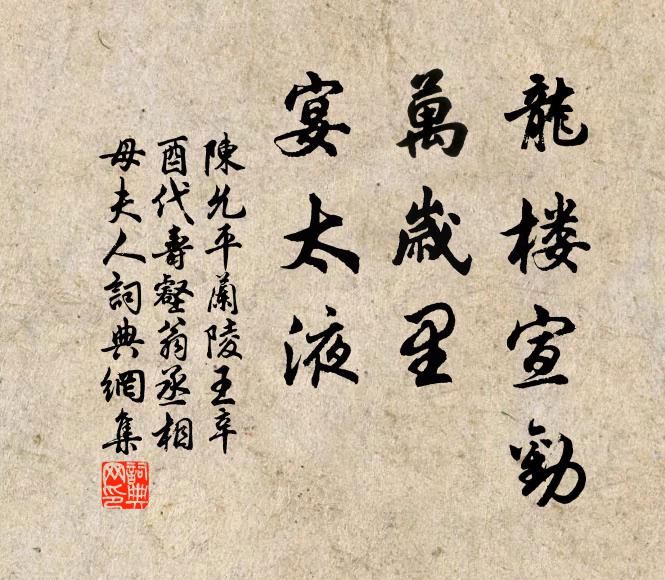 龍楼宣勸
萬歲里
宴太液
陳允平蘭陵王辛
酉代壽壑翁丞相
母夫人詞典網集
詞典网印